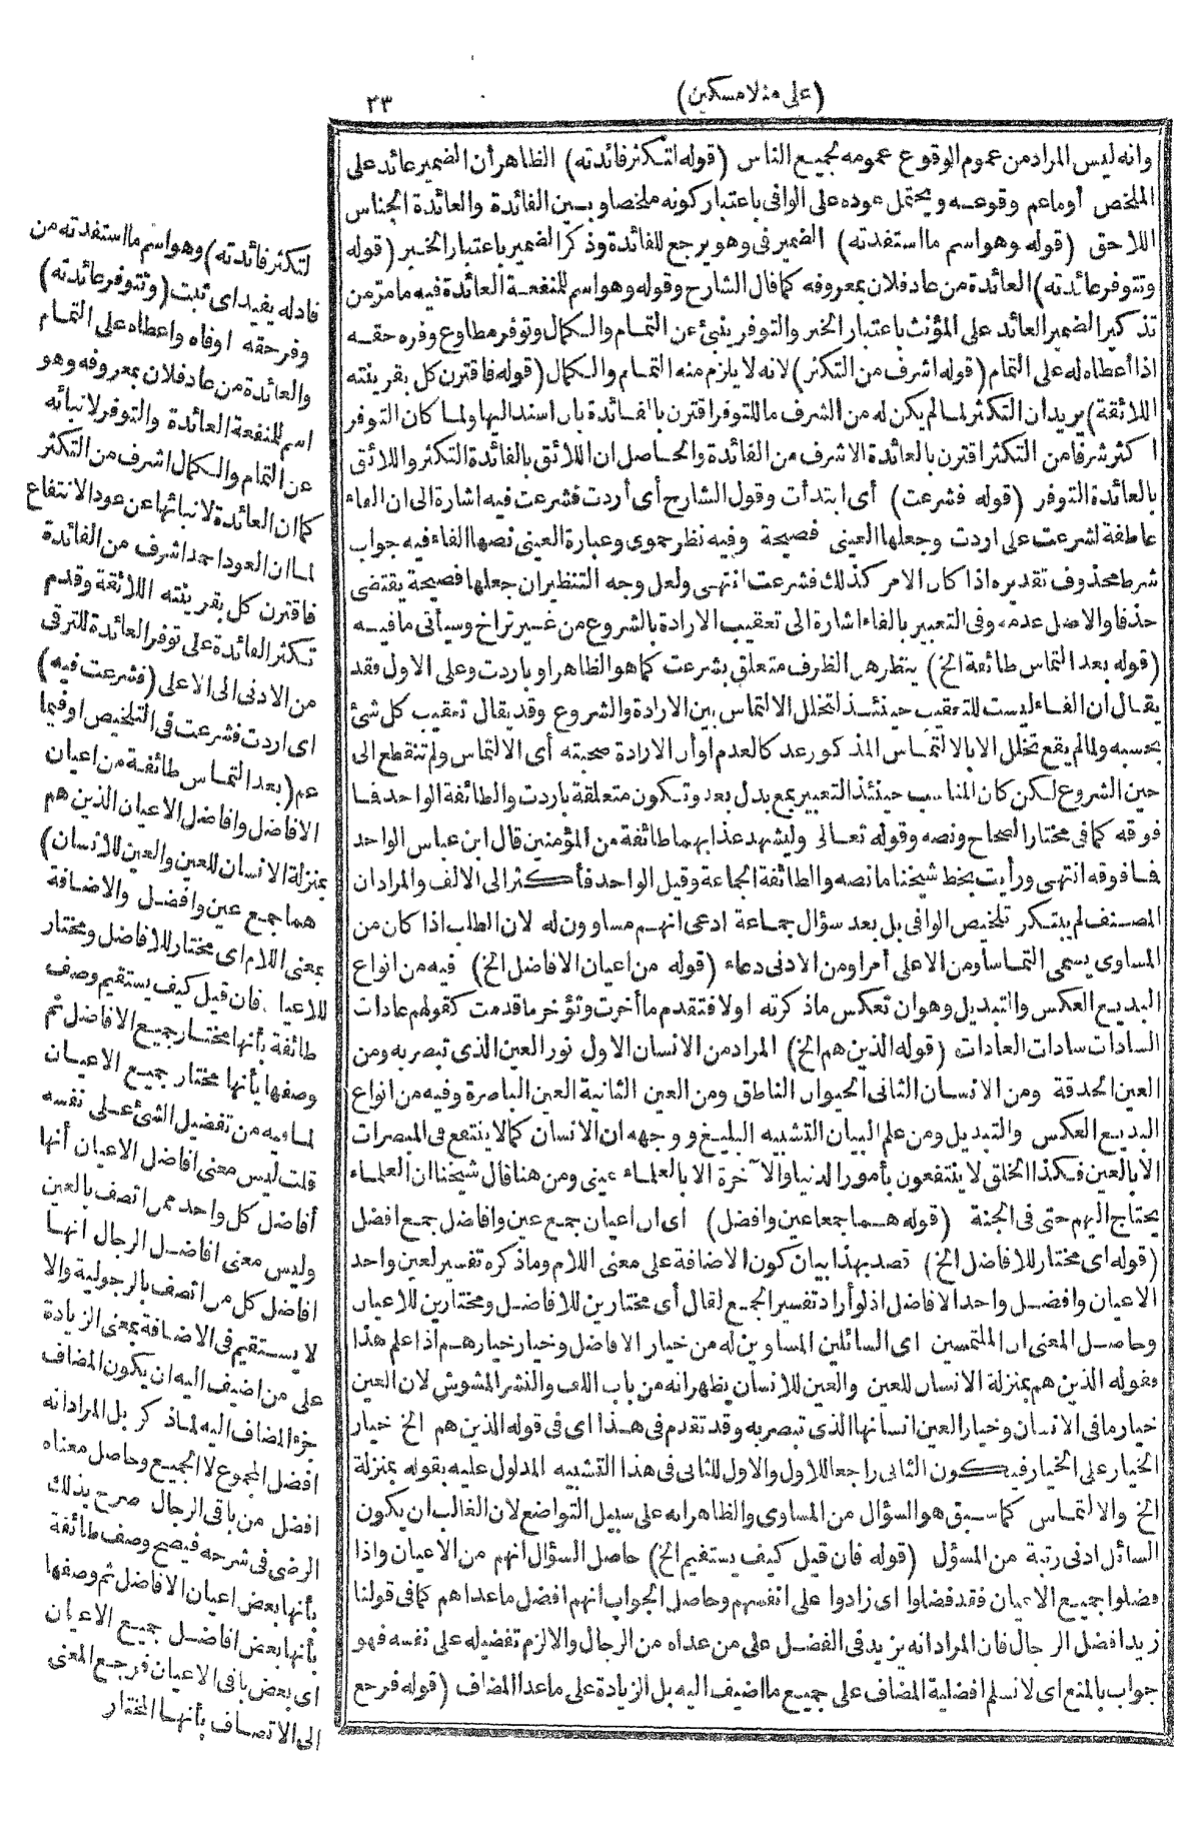 (على منلا مسكين)
٢٣
وانه ليس المراد من عموم الوقوع عمومه لجميع الناس (قوله لتكثر فائدته) الظاهر أن الضمير عائد على
الملخص أوماعم وقوعه ويحتمل عوده على الوافى باعتبار كونه ملخصا وبين الفائدة والعائدة الجناس
اللاحق (قوله وهو اسم ما استفدته) الضمير فى وهو يرجع للفائدة وذكر الضمير باعتبار الخبر (قوله
وتتوفر عائدته) العائدة من عاد فلان بمعروفه كما قال الشارح وقوله وهو اسم للمنفعة العائدة فيه ما مر من
تذكير الضمير العائد على المؤنث باعتبار الخبر والتوفر ينبئ عن التمام والكمال وتوفر مطاوع وفره حقه
اذا أعطاه له على التمام (قوله اشرف من التكثر) لانه لا يلزم منه التمام والكمال (قوله فاقترن كل بقرينته
اللائقة) يريد ان التكثر لما لم يكن له من الشرف ما للتوفر اقترن بالفائدة بان اسند اليها ولما كان التوفر
اكثر شرفا من التكثر اقترن بالعائدة الاشرف من الفائدة والحاصل ان اللائق بالفائدة التكثر واللائق
بالعائدة التوفر (قوله فشرعت) أى ابتدأت وقول الشارح أى أردت فشرعت فيه اشارة الى ان الفاء
عاطفة لشرعت على اردت وجعلها العينى فصيحة وفيه نظر حموى وعبارة العينى نصها الفاء فيه جواب
شرط محذوف تقديره اذا كان الامر كذلك فشرعت انتهى ولعل وجه التنظير ان جعلها فصيحة يقتضى
حذفا والاصل عدمه وفى التعبير بالفاء اشارة الى تعقيب الارادة بالشروع من غير تراخ وسيأتى ما فيه
(قوله بعد التماس طائفة الخ) ينظر هل الظرف متعلق بشرعت كما هو الظاهر او باردت وعلى الاول فقد
يقال ان الفاء ليست للتعقيب حينئذ لتخلل الالتماس بين الارادة والشروع وقد يقال تعقيب كل شئ
بحسبه ولما لم يقع تخلل الا بالالتماس المذكور عد كالعدم اوأن الارادة صحبته أى الالتماس ولم تنقطع الى
حين الشروع لكن كان المناسب حينئذ التعبير بمع بدل بعد وتكون متعلقة باردت والطائفة الواحد فما
فوقه كما فى مختار الصحاح ونصه وقوله تعالى وليشهد عذابهما طائفة من المؤمنين قال ابن عباس الواحد
فما فوقه انتهى ورأيت بخط شيخنا ما نصه والطائفة الجماعة وقيل الواحد فأكثر الى الالف والمراد ان
المصنف لم يبتكر تلخيص الوافى بل بعد سؤال جماعة ادعى انهم مساوون له لان الطلب اذا كان من
المساوى يسمى التماسا ومن الاعلى أمرا ومن الادنى دعاء (قوله من اعيان الافاضل الخ) فيه من انواع
البديع العكس والتبديل وهو ان تعكس ما ذكرته اولا فتقدم ما أخرت وتؤخر ما قدمت كقولهم عادات
السادات سادات العادات (قوله الذين هم الخ) المراد من الانسان الاول نور العين الذى تبصر به ومن
العين الحدقة ومن الانسان الثانى الحيوان الناطق ومن العين الثانية العين الباصرة وفيه من انواع
البديع العكس والتبديل ومن علم البيان التشبيه البليغ ووجهه ان الانسان كما لا ينتفع فى المبصرات
الا بالعين فكذا الخلق لا ينتفعون بأمور الدنيا والآخرة الا بالعلماء عينى ومن هنا قال شيخنا ان العلماء
يحتاج اليهم حتى فى الجنة (قوله هما جمعا عين وافضل) اى ان اعيان جمع عين وافاضل جمع افضل
(قوله اى مختار للافاضل الخ) قصد بهذا بيان كون الاضافة على معنى اللام وما ذكره تفسير لعين واحد
الاعيان وافضل واحد الافاضل اذ لو أراد تفسير الجمع لقال أى مختارين للافاضل ومختارين للاعيان
وحاصل المعنى ان الملتمسين اى السائلين المساوين له من خيار الافاضل وخيار خيارهم اذا علم هذا
فقوله الذين هم بمنزلة الانسان للعين والعين للانسان يظهر انه من باب اللف والنشر المشوش لان العين
خيار ما فى الانسان وخيار العين انسانها الذى تبصر به وقد تقدم فى هذا اى فى قوله الذين هم الخ خيار
الخيار على الخيار فيكون الثانى راجعا للاول والاول للثانى فى هذا التشبيه المدلول عليه بقوله بمنزلة
الخ والالتماس كما سبق هو السؤال من المساوى والظاهر انه على سبيل التواضع لان الغالب ان يكون
السائل ادنى رتبة من المسؤل (قوله فان قيل كيف يستقيم الخ) حاصل السؤال انهم من الاعيان واذا
فضلوا جميع الاعيان فقد فضلوا اى زادوا على انفسهم وحاصل الجواب انهم افضل ما عداهم كما فى قولنا
زيد افضل الرجال فان المراد انه يزيد فى الفضل على من عداه من الرجال والا لزم تفضيله على نفسه فهو
جواب بالمنع اى لا نسلم افضلية المضاف على جميع ما اضيف اليه بل الزيادة على ما عدا المضاف (قوله فرجع
لتكثر فائدته) وهو اسم ما استفدته من
فاد له يفيد اى ثبت (وتتوفر عائدته)
وفر حقه اوفاه واعطاه على التمام
والعائدة من عاد فلان بمعروفه وهو
اسم للمنفعة العائدة والتوفر لانبائه
عن التمام والكمال اشرف من التكثر
كما ان العائدة لانبائها عن عود الانتفاع
لما ان العود احمد اشرف من الفائدة
فاقترن كل بقرينته اللائقة وقدم
تكثر الفائدة على توفر العائدة للترقى
من الادنى الى الاعلى (فشرعت فيه)
اى اردت فشرعت فى التلخيص او فيما
عم (بعد التماس طائفة من اعيان
الافاضل وافاضل الاعيان الذين هم
بمنزلة الانسان للعين والعين للانسان)
هما جمع عين وافضل والاضافة
بمعنى اللام اى مختار للافاضل ومختار
للاعيان فان قيل كيف يستقيم وصف
طائفة بأنها مختار جميع الافاضل ثم
وصفها بأنها مختار جميع الاعيان
لما فيه من تفضيل الشئ على نفسه
قلت ليس معنى افاضل الاعيان أنها
أفاضل كل واحد ممن اتصف بالعين
وليس معنى افاضل الرجال انها
افاضل كل من اتصف بالرجولية والا
لا يستقيم فى الاضافة بمعنى الزيادة
على من اضيف اليه ان يكون المضاف
جزء المضاف اليه لما ذكر بل المراد انه
افضل المجموع لا الجميع وحاصل معناه
افضل من باقى الرجال صرح بذلك
الرضى فى شرحه فيصح وصف طائفة
بأنها بعض اعيان الافاضل ثم وصفها
بأنها بعض افاضل جميع الاعيان
اى بعض باقى الاعيان فرجع المعنى
الى الاتصاف بأنها المختار